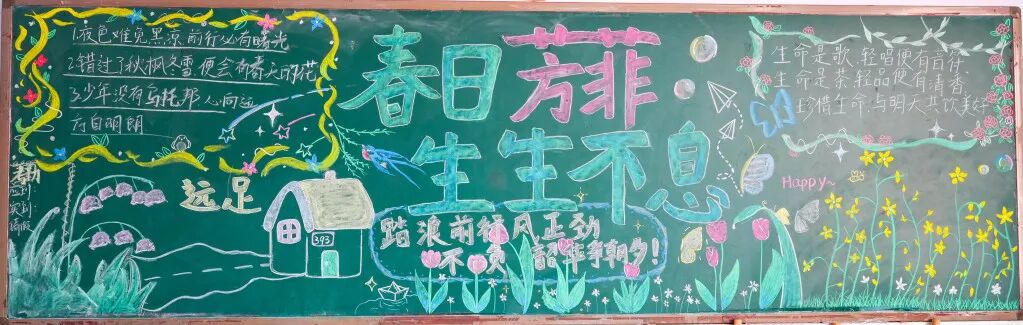 1.夜色难免黑凉前行必有曙光
2.错过了秋枫冬雪便会有春天的花
3.少年没有乌托邦 心向远
方自明朗
远足
393
春日芳菲
生生不息
踏浪前行风正劲
不负韶华争朝夕!
生命是歌,轻唱便有音符
生命是茶,轻品便有清香
珍惜生命,与明天共饮美好
Happy~